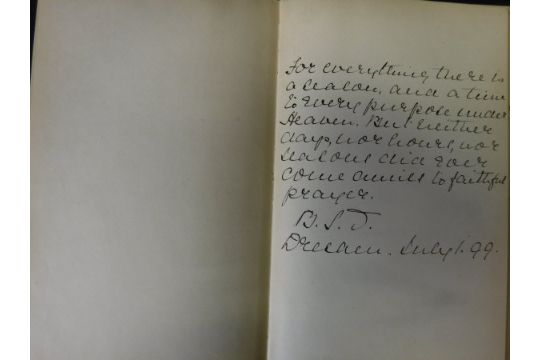 For everything there is
a season, and a time
to every purpose under
Heaven. But neither
days, nor hours, nor
seasons did ever
come amiss to faithful
prayer.
B. S. T.
July 1. 99.